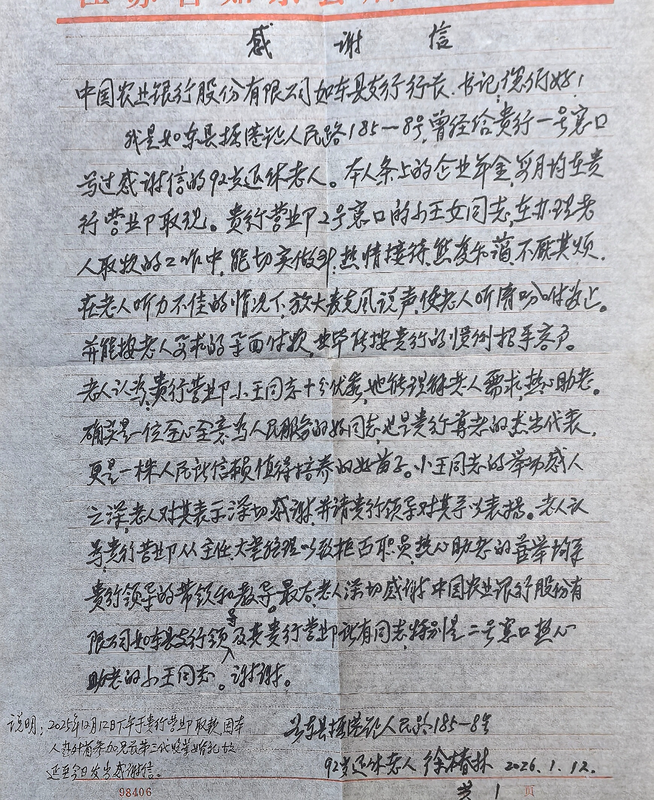 感谢信
中国农业银行股份有限公司如东县支行行长、书记,您们好!
我是如东县掘港镇人民路185—8号,曾经给贵行一号窗口
写过感谢信的92岁退休老人。本人条上的企业年金,每月均在贵
行营业部取现。贵行营业部2号窗口的小王女同志,在办理老
人取款的工作中,能切实做到,热情接待,然复示蔼,不厌其烦,
在老人听力不佳的情况下,放大麦克风说声,使老人听清吩咐为止。
并能按老人要求的票面付款,业毕后按贵行的惯例招手客户。
老人认为,贵行营业部小王同志十分优秀,她能理解老人需求,热心助老。
确实是一位全心全意为人民服务的好同志,也是贵行尊老的杰出代表,
更是一株人民所信赖值得培养的好苗子。小王同志的举动感人
之深,老人对其表示深切感谢,并请贵行领导对其予以表扬。老人认
为贵行营业部从主任、大堂经理以致柜面职员,热心助老的善举均系
贵行领导的带领和教导。最后,老人深切感谢中国农业银行股份有
限公司如东县支行领导及其贵行营业部所有同志,特别是二号窗口热心
助老的小王同志。谢谢。
如东县掘港镇人民路185—8号
92岁退休老人 徐椿林 2026.1.12.
说明:2025年12月12日下午于贵行营业部取款,因本
人想外省参加兄长第三代婚礼故
延至今日发出感谢信。
98406
共1页